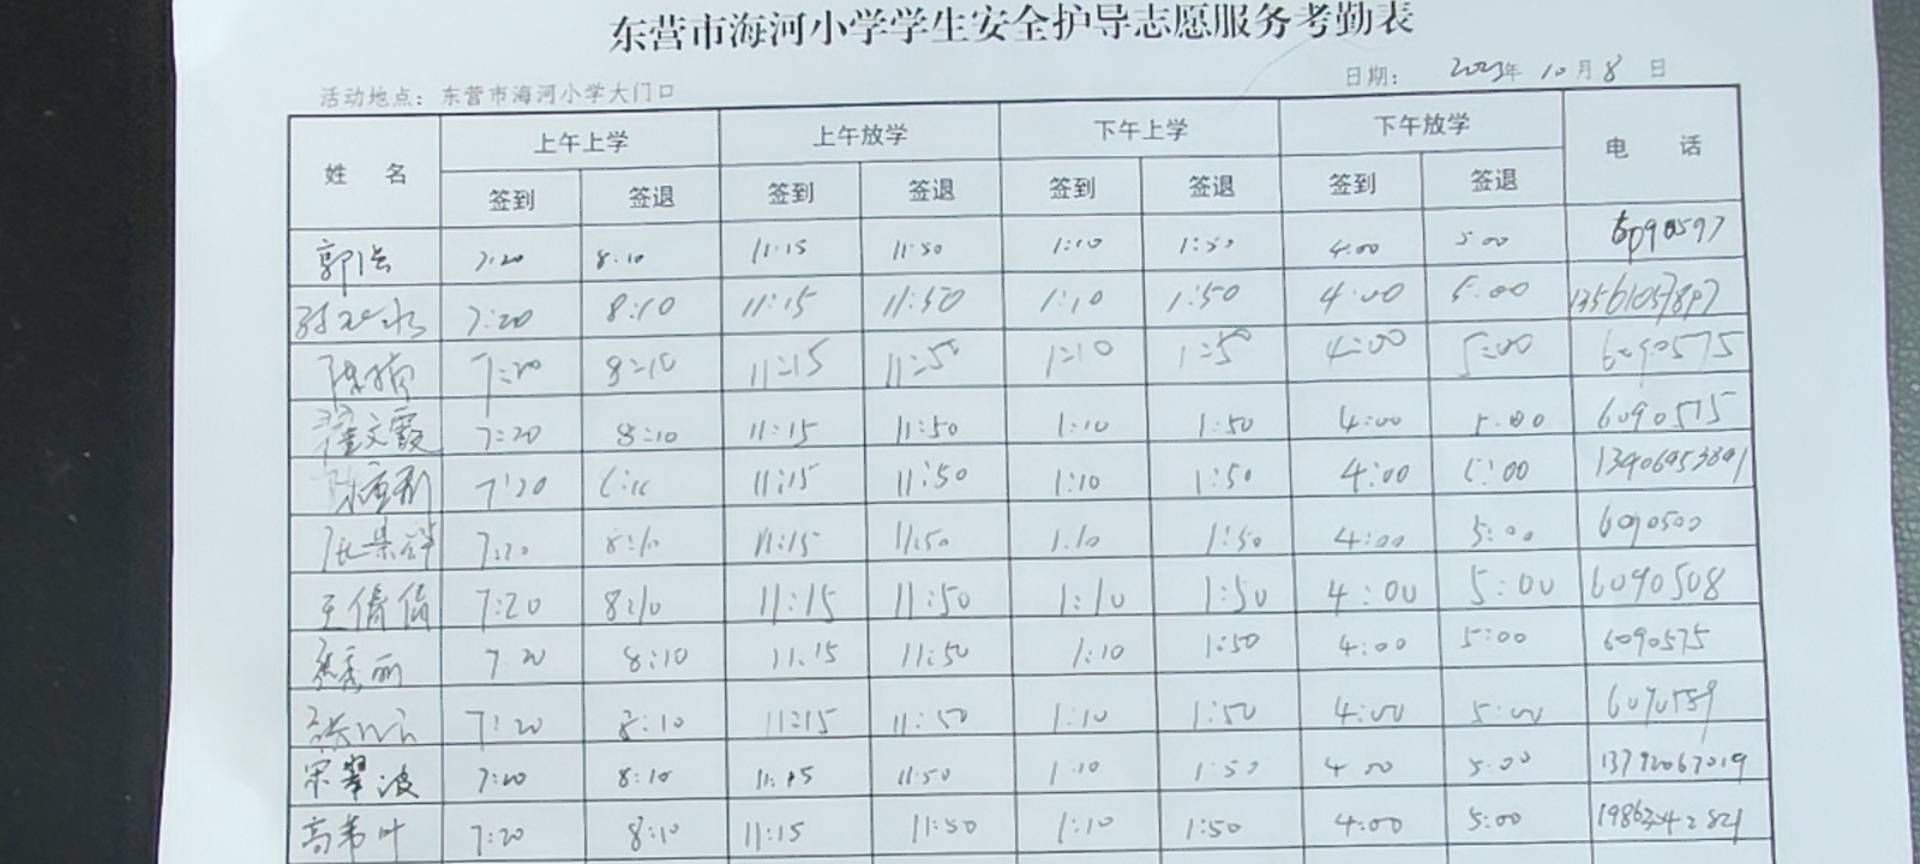 东营市海河小学学生安全护导志愿服务考勤表
活动地点：东营市海河小学大门口 日期： 2023年 10月 8 日
姓 名 上午上学 上午放学 下午上学 下午放学 电 话
签到 签退 签到 签退 签到 签退 签到 签退
郭 7:20 8:10 11:15 11:50 1:10 1:50 4:00 5:00 6090597
7:20 8:10 11:15 11:50 1:10 1:50 4:00 5:00
陈 7:20 8:10 11:15 11:5 1:10 1:5 4:00 5:00 6090575
翟文霞 7:20 8:10 11:15 11:50 1:10 1:50 4:00 5:00 6090575
7:20 11:15 11:50 1:10 1:50 4:00 5:00
张景祥 7:20 8:10 11:15 11:50 1:10 1:50 4:00 5:00 6090500
王倩倩 7:20 8:10 11:15 11:50 1:10 1:50 4:00 5:00 6090508
秀丽 7 20 8:10 11:15 11:50 1:10 1:50 4:00 5:00 6090575
张 7:20 8:10 11:15 11:50 1:10 1:50 4:00 5:00 6090589
宋翠波 7:20 8:10 11:15 11:50 1:10 1:50 4:00 5:00 13792067019
高 叶 7:20 8:10 11:15 11:50 1:10 1:50 4:00 5:00 19863442821